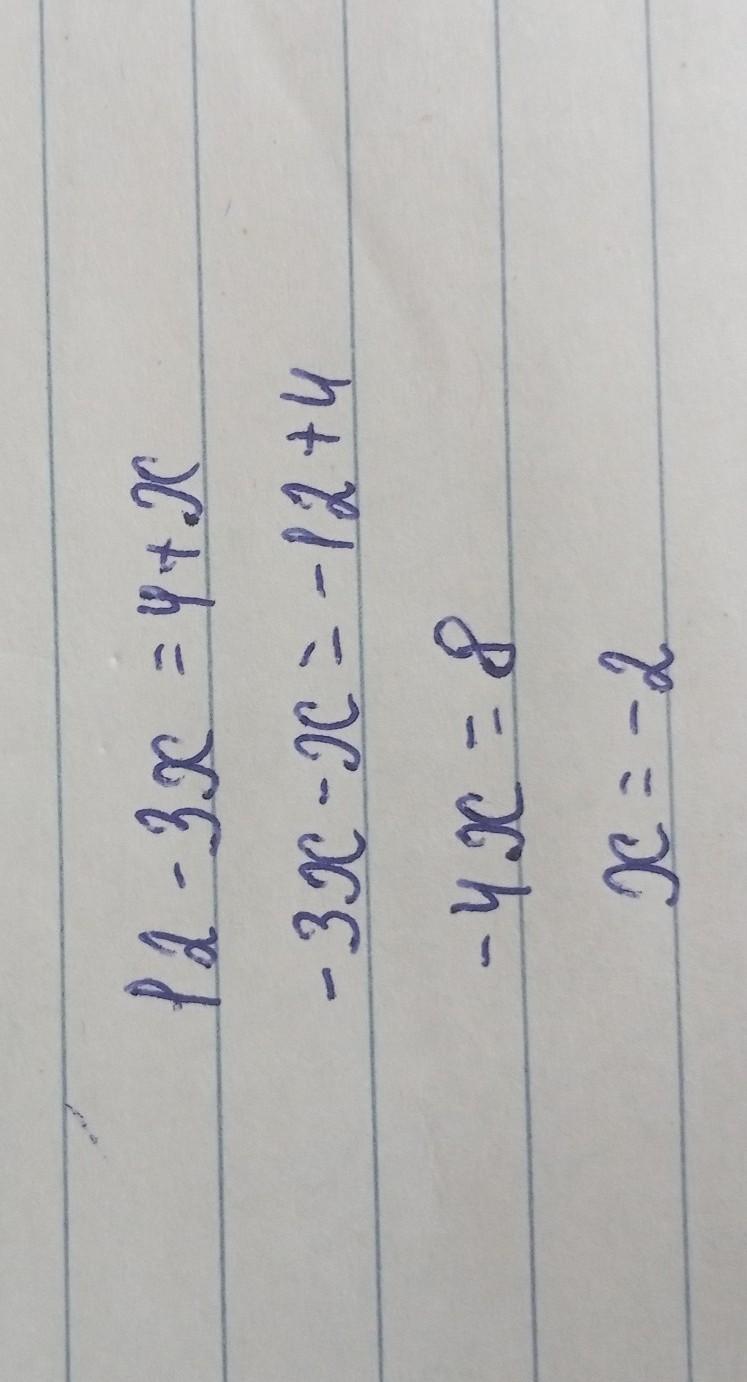 12 - 3x = 4 + x
-3x - x = -12 + 4
-4x = 8
x = -2